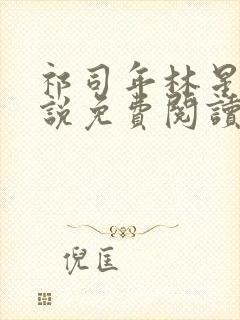 祁司年林星
説免費閱讀
倪匡